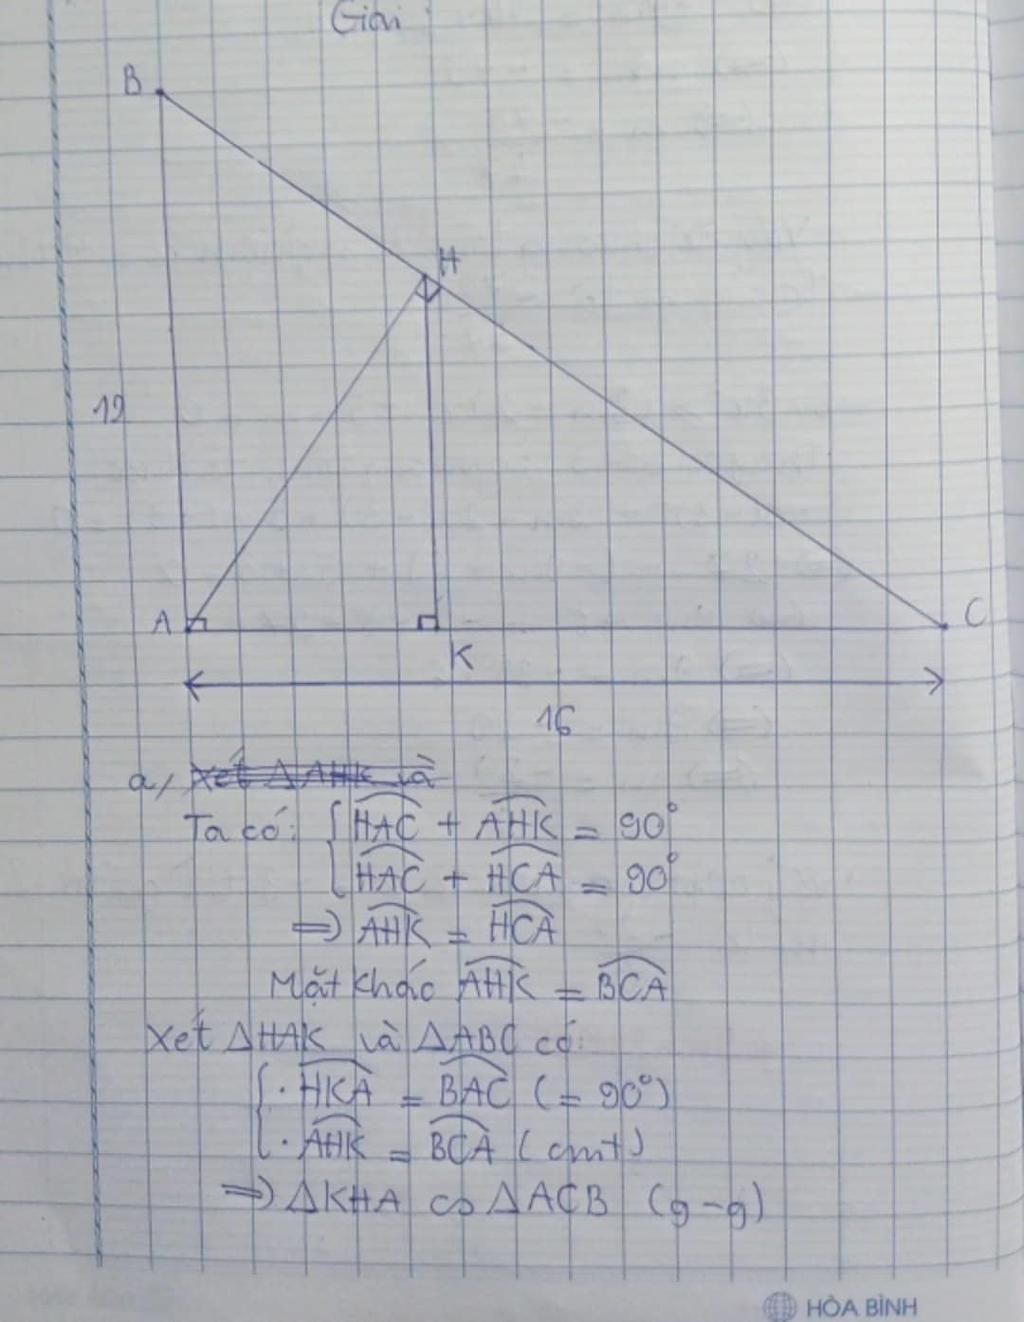 Giải :
B
H
12
A
C
K
16
a, Xét ΔAHK và
Ta có: { HAC + AHK = 90°
HAC + HCA = 90°
=> AHK = HCA
Mặt khác AHK = BCA
Xét ΔHAK và ΔABC có:
{ · HKA = BAC (= 90°)
· AHK = BCA (cmt)
=> ΔKHA ∽ ΔACB (g-g)
HÒA BÌNH